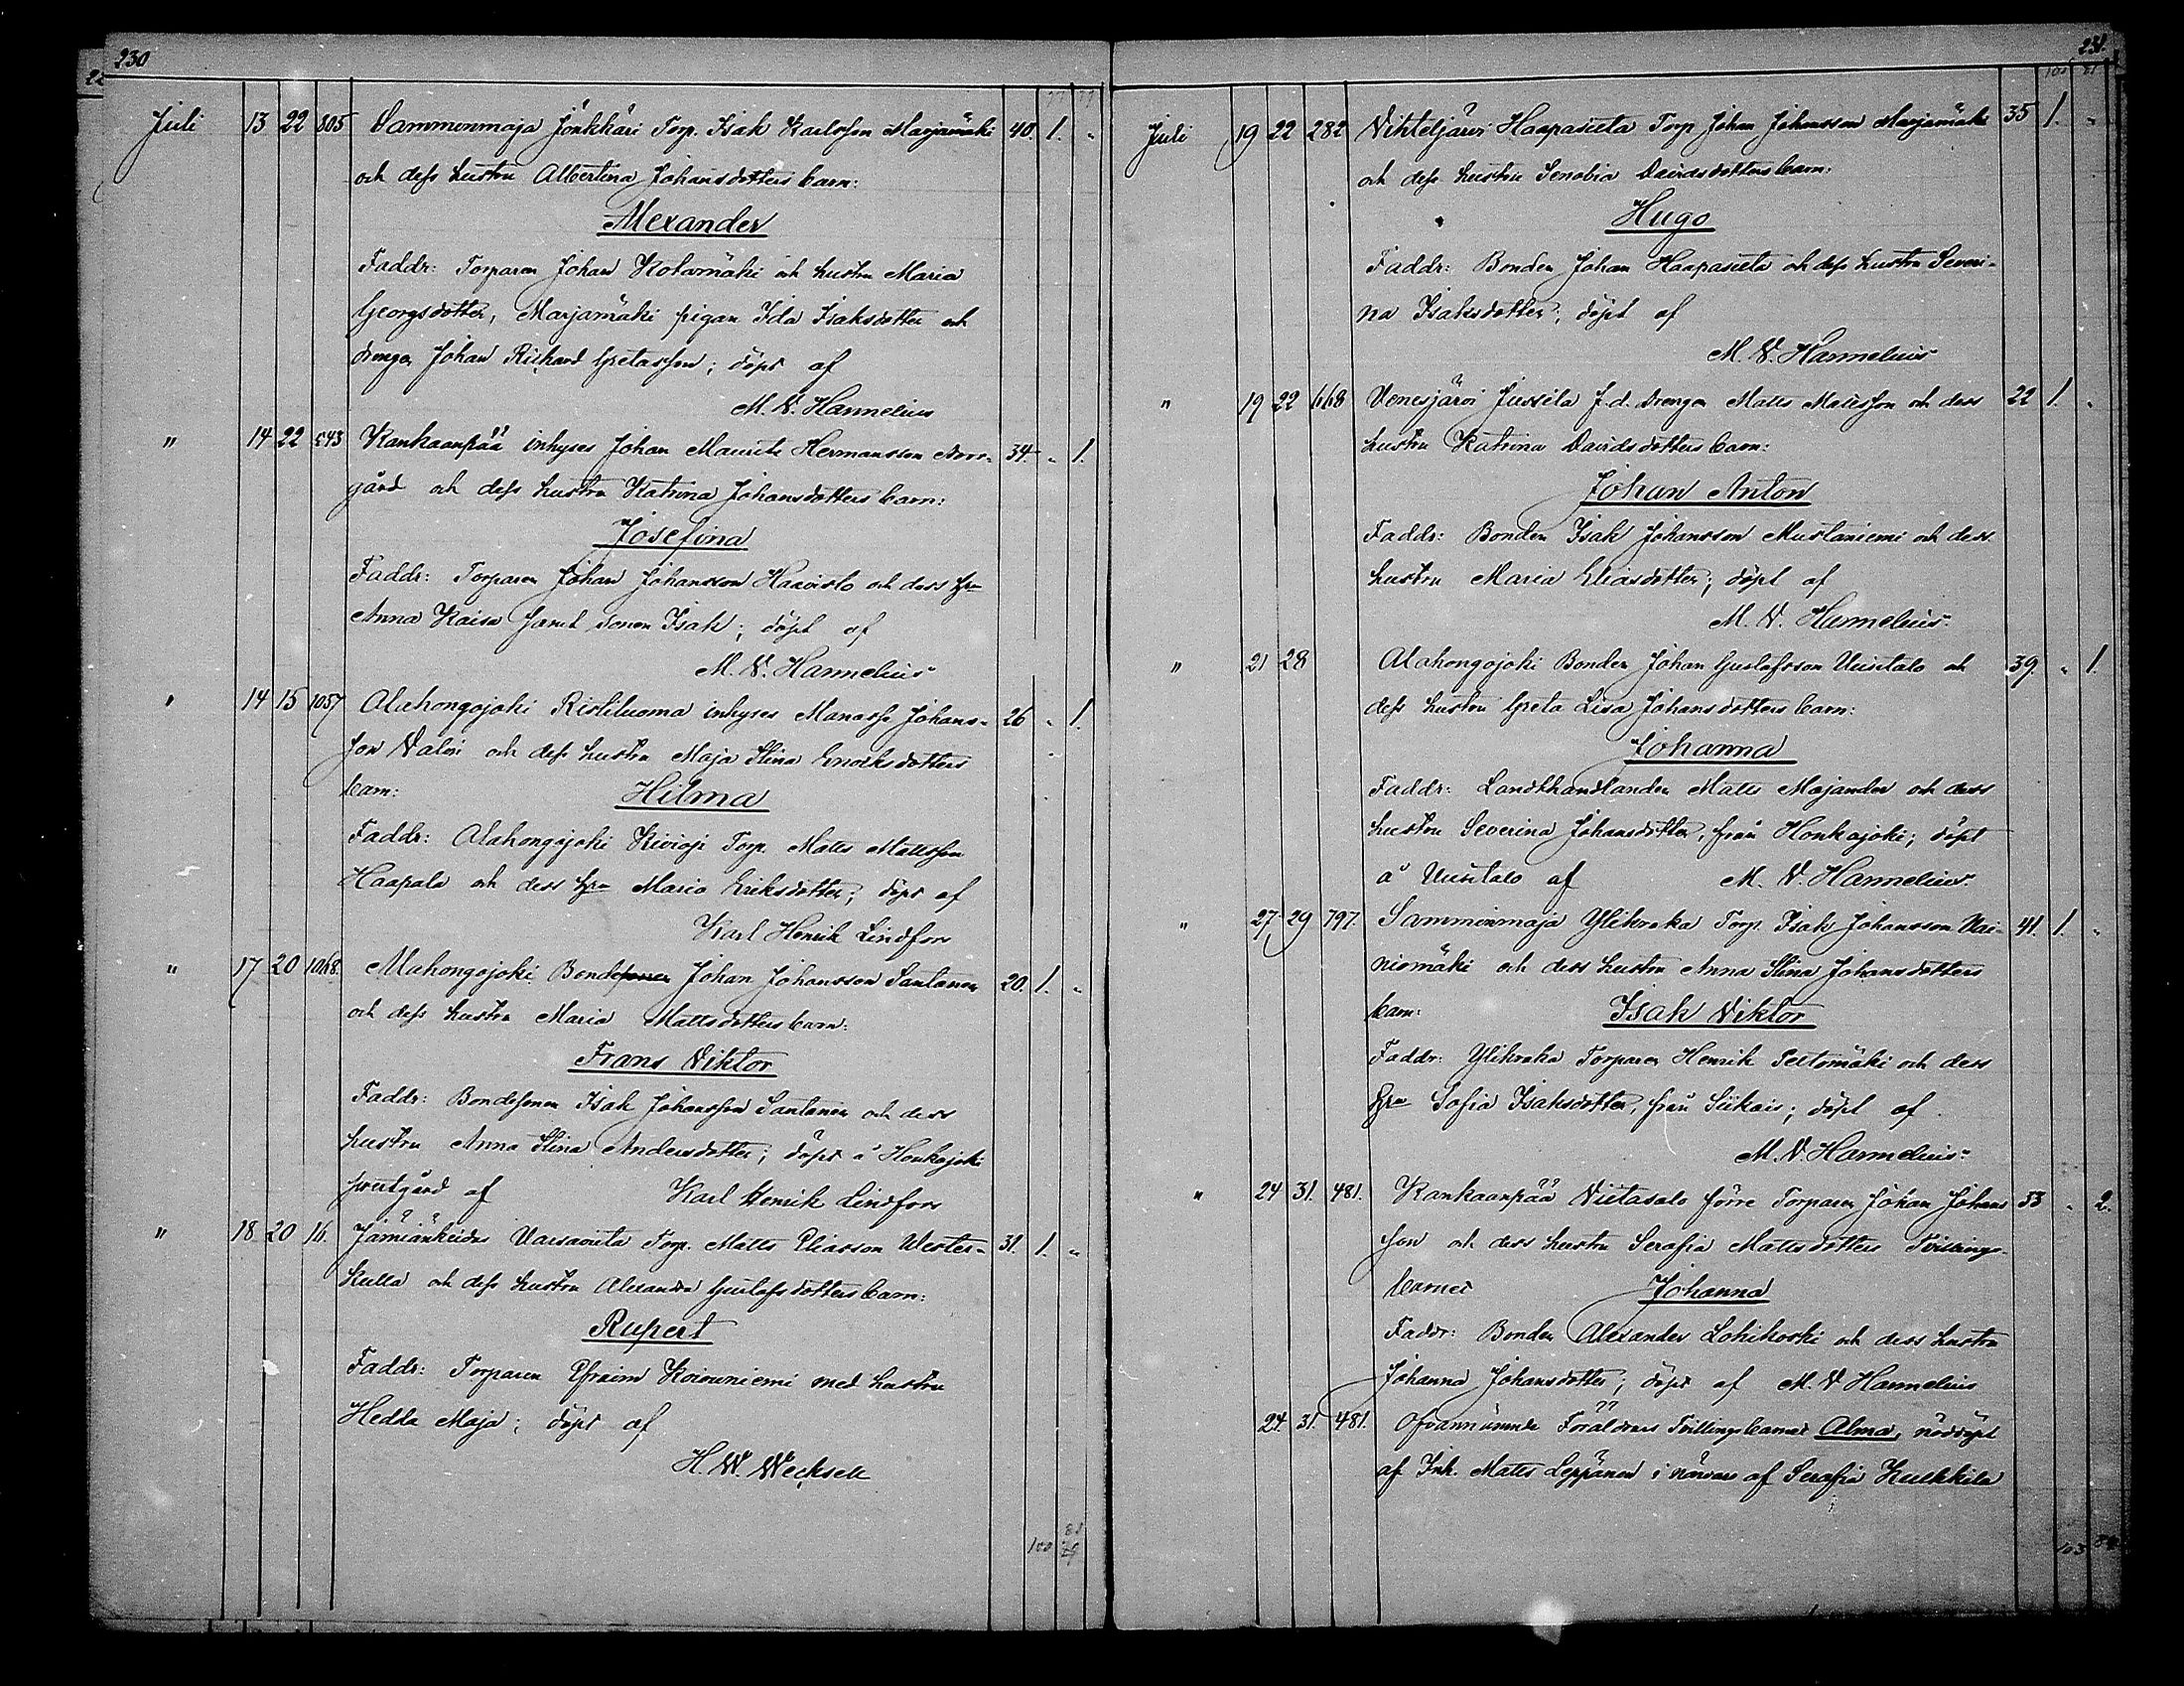 230
Juli 13 22 805 Sammenmaja Jönkkäri Torp. Isak Karlsson Marjamäki 40. 1. "
och dess hustru Albertina Johansdotters barn:
Alexander
Faddr: Torparen Johan Kotamäki och hustru Maria
Georgsdotter, Marjamäki pigan Ida Isaksdotter och
drengen Johan Richard Gretasson; döpt af
M. V. Hannelius
" 14 22 543 Kankaanpää inhyses Johan Maurits Hermansson Norr- 34. " 1.
gård och dess hustru Katrina Johansdotters barn:
Josefina
Faddr: Torparen Johan Johansson Haavisto och dess hu
Anna Kaisa samt sonen Isak; döpt af
M. V. Hannelius
" 14 15 1057 Alahongojoki Ristiluoma inhyses Manasse Johans- 26 " 1.
son Valli och dess hustru Maja Stina Enocksdotters
barn: Hilma
Faddr: Alahongojoki Kivioja Torp. Matts Mattsson
Haapala och dess hu Maria Eriksdotter; döpt af
Karl Henrik Lindfors
" 17 20 1068. Alahongojoki Bondesonen Johan Johansson Santanen 20. 1. "
och dess hustru Maria Mattsdotters barn:
Frans Viktor
Faddr: Bondesonen Isak Johansson Santanen och dess
hustru Anna Stina Andersdotter; döpt å Honkajoki
prestgård af Karl Henrik Lindfors
" 18 20 16. Jämiänkeidas Torp. Matts Eliasson Wester- 31. 1. "
kulla och dess hustru Alexandra Gustafsdotters barn:
Rupert
Faddr: Torparen Efraim Koivuniemi med hustru
Hedda Maja; döpt af
H. W. Weçksell
100 81
79
231.
101 81
Juli 19 22 282 Vihteljärvi Haapasieta Torp. Johan Johansson Marjamäki 35 1. "
och dess hustru Senobia Davidsdotters barn:
Hugo
Faddr: Bonden Johan Haapasieta och dess hustru Severi-
na Isaksdotter; döpt af
M. V. Hannelius
" 19 22 668 Venesjärvi Jussila f.d. Drengen Matts Mattsson och dess 22 1. "
hustru Katrina Davidsdotters barn:
Johan Anton
Faddr: Bonden Isak Johansson Mustaniemi och dess
hustru Maria Eliasdotter; döpt af
M. V. Hannelius
" 21 28 Alahongojoki Bonden Johan Gustafsson Uusitalo och 39. " 1.
dess hustru Greta Lisa Johansdotters barn:
Johanna
Faddr: Landthandlanden Matts Majander och dess
hustru Severina Johansdotter, från Honkajoki; döpt
å Uusitalo af M. V. Hannelius.
" 27 29 797. Sammenmaja Ylikraka Torp. Isak Johansson Vai- 41. 1. "
niomäki och dess hustru Anna Stina Johansdotters
barn: Isak Viktor
Faddr: Ylikraka Torparen Henrik Peltomäki och dess
hu Sofia Isaksdotter, från Siikais; döpt af
M. V. Hannelius
" 24 31. 481. Kankaanpää Viitasalo förre Torparen Johan Johans 33 " 2.
son och dess hustru Serafia Mattsdotters Tvillings-
barnet Johanna
Faddr: Bonden Alexander Lohikoski och dess hustru
Johanna Johansdotter; döpt af M. V Hannelius
24. 31. 481. Ofvannämnde Föräldrars Tvillingsbarnet Alma, nöddöpt
af Inh. Matts Leppänen i närvaro af Serafia Kulkkila
103 84